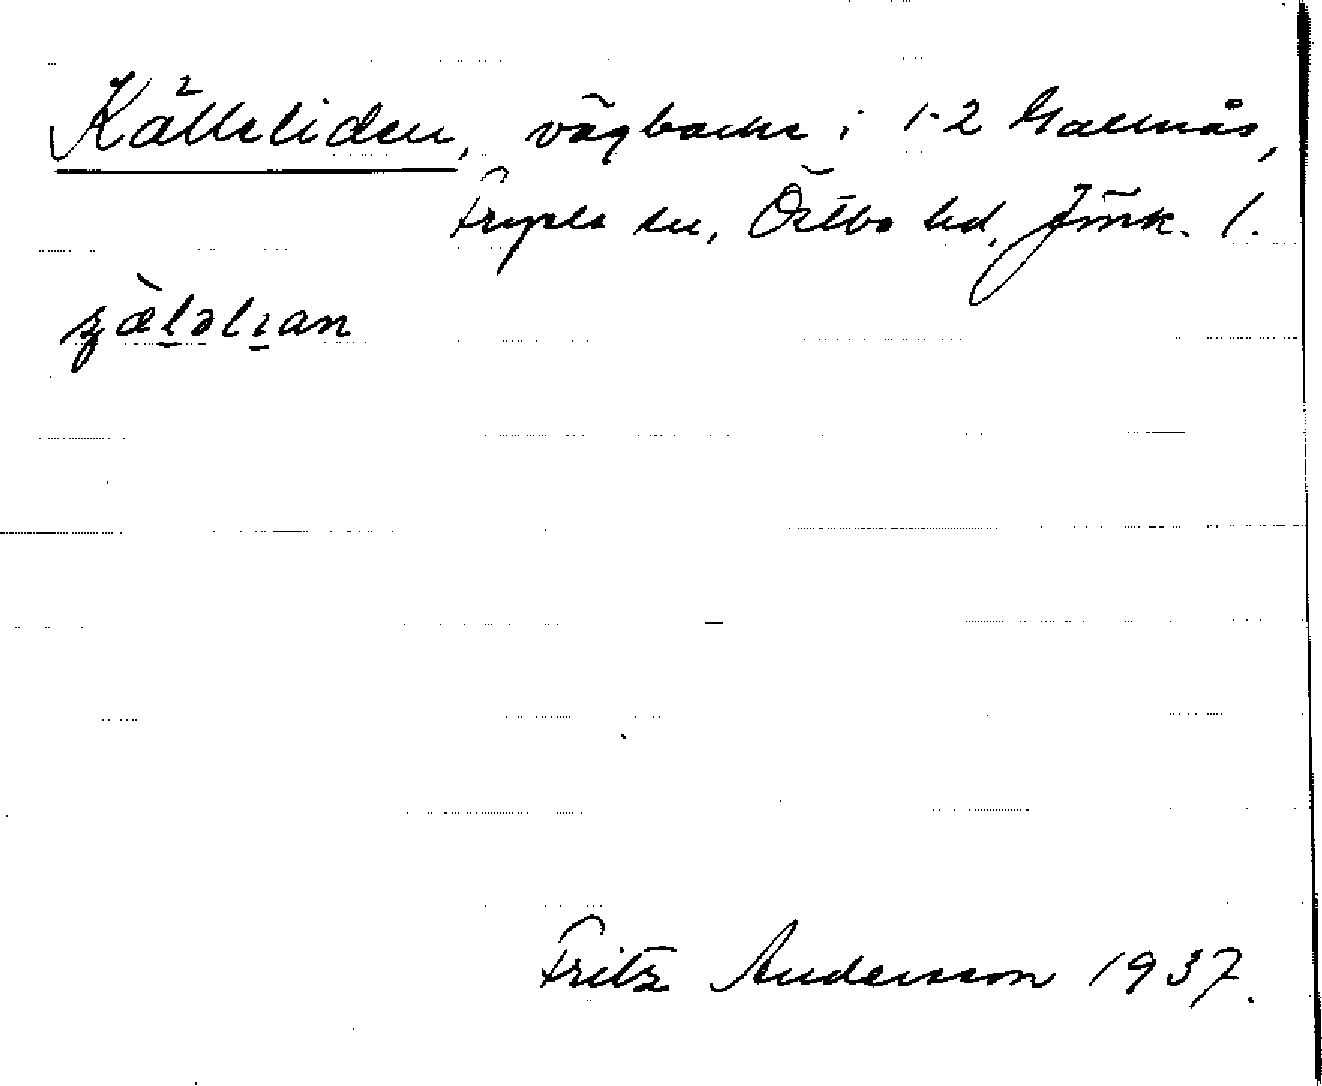 Källeliden, vägbacke i 1-2 Galtnås,
Fryele sn, Östbo hd, Jönk. l.
Fritz Andersson 1937.